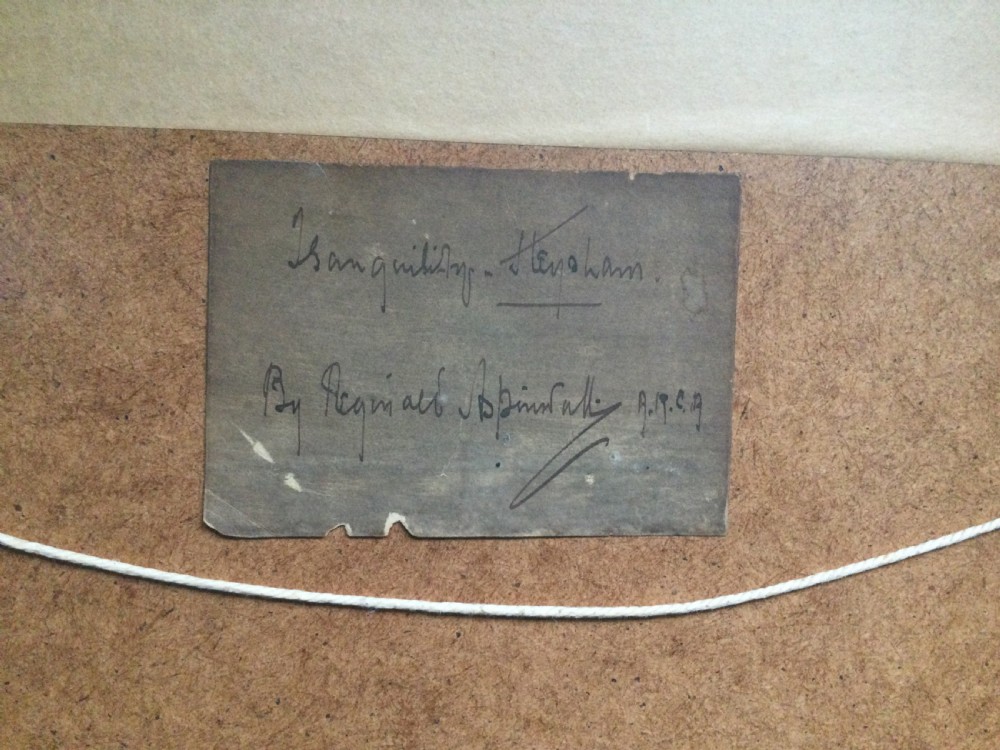 Tranquility. - Heysham.
By Reginald Aspinwall A.R.C.A